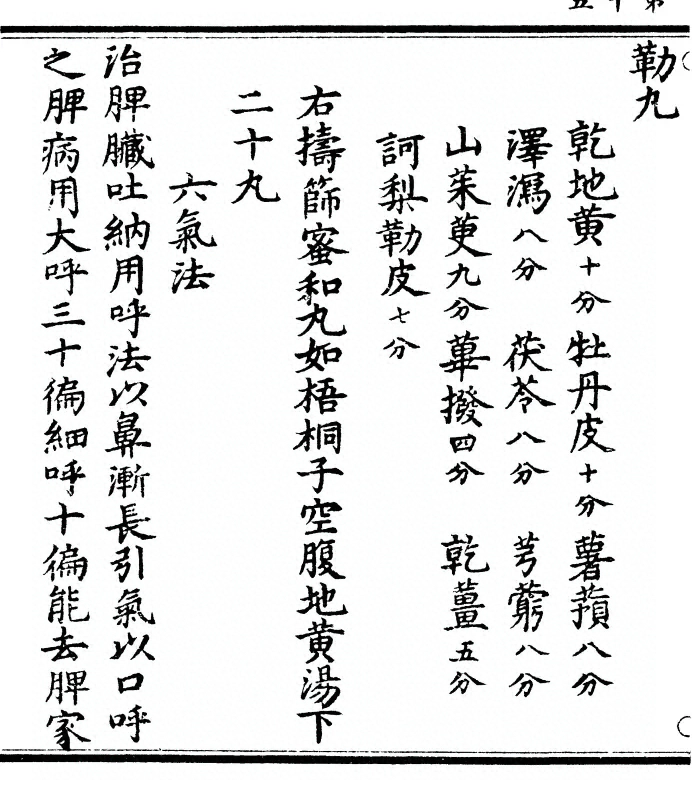 勒丸
乾地黄十分 牡丹皮十分 薯蕷八分
澤瀉八分 茯苓八分 芎藭八分
山茱萸九分 蓽撥四分 乾薑五分
訶梨勒皮七分
右擣篩蜜和丸如梧桐子空腹地黄湯下
二十丸
六氣法
治脾臟吐納用呼法以鼻漸長引氣以口呼
之脾病用大呼三十徧細呼十徧能去脾家